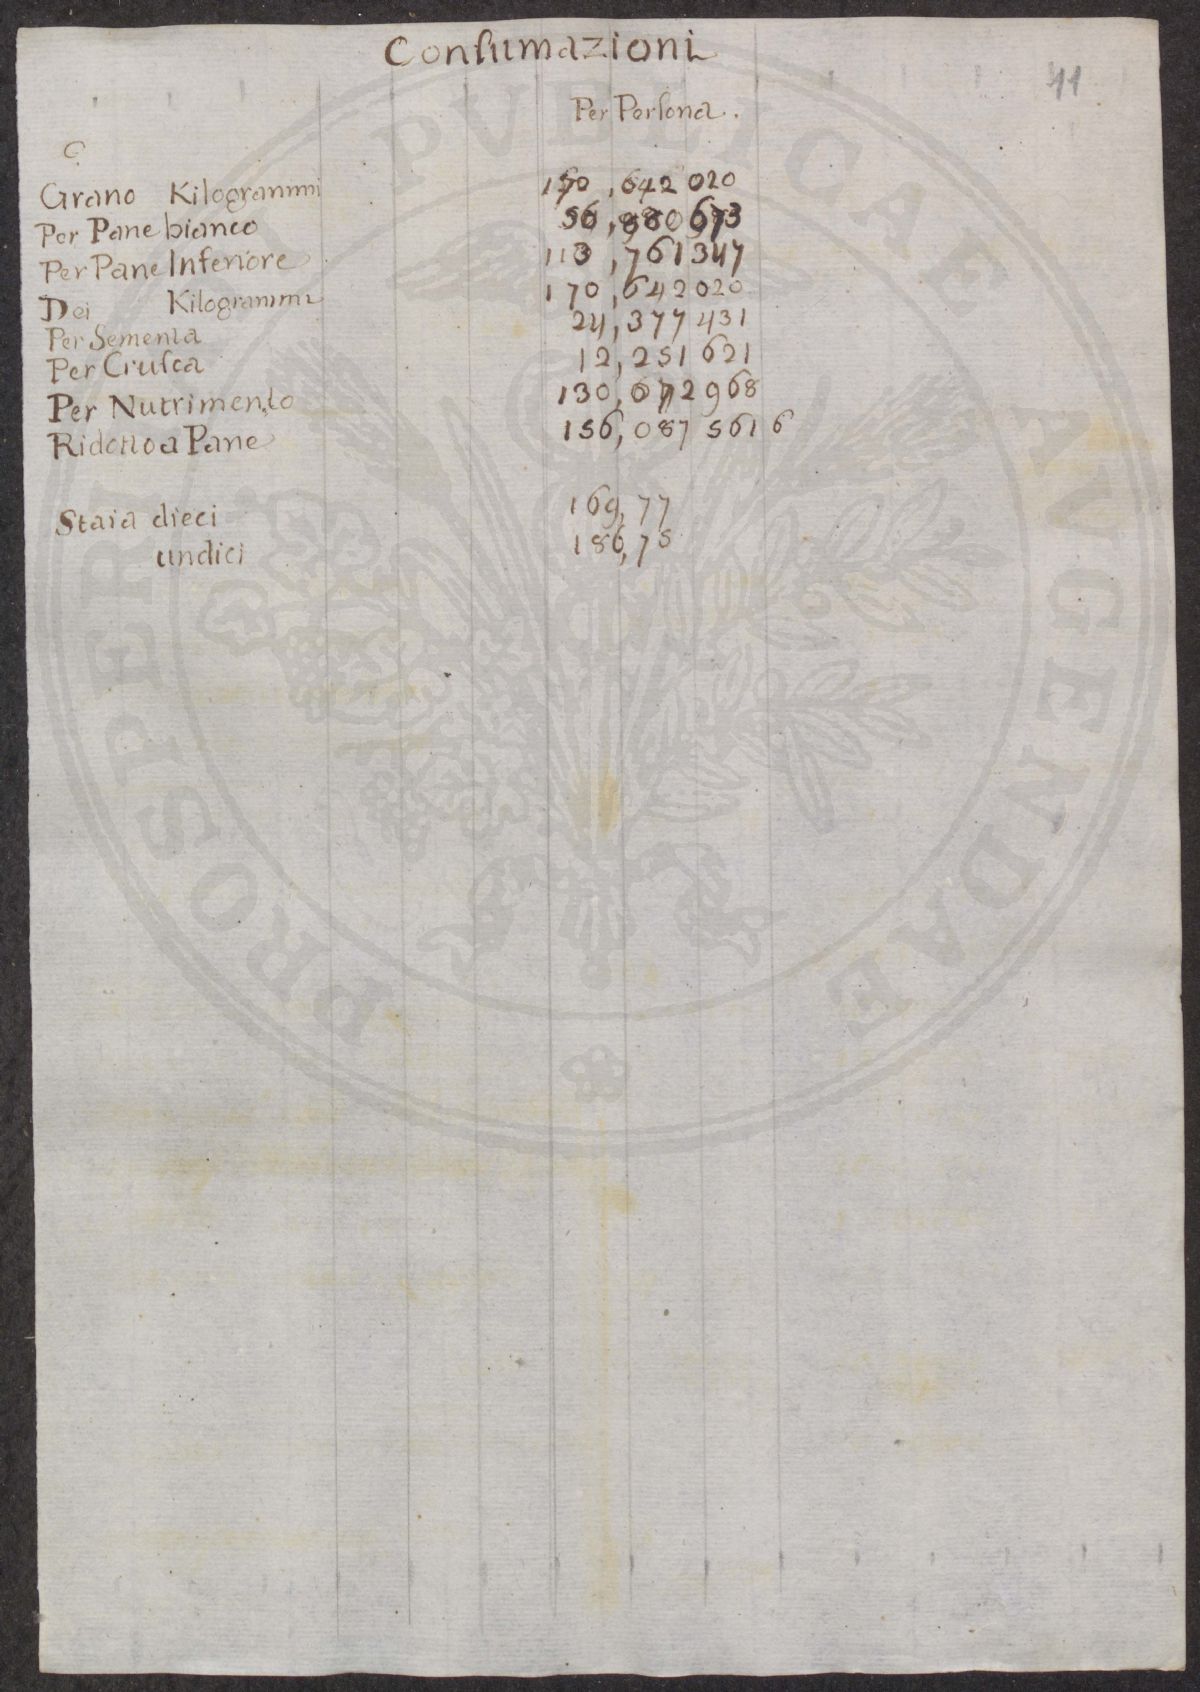 Consumazioni
41
Per Persona.
Grano Kilogrammi 170,642 020
Per Pane bianco 56,880 673
Per Pane Inferiore 113,761 347
Dei Kilogrammi 170,642 020
Per Sementa 24,377 431
Per Crusca 12,251 621
Per Nutrimento 130,072 968
Ridotto a Pane 156,087 561 6
Staia dieci 169,77
undici 186,75
PROSPERITATI PVBLICAE AVGENDAE